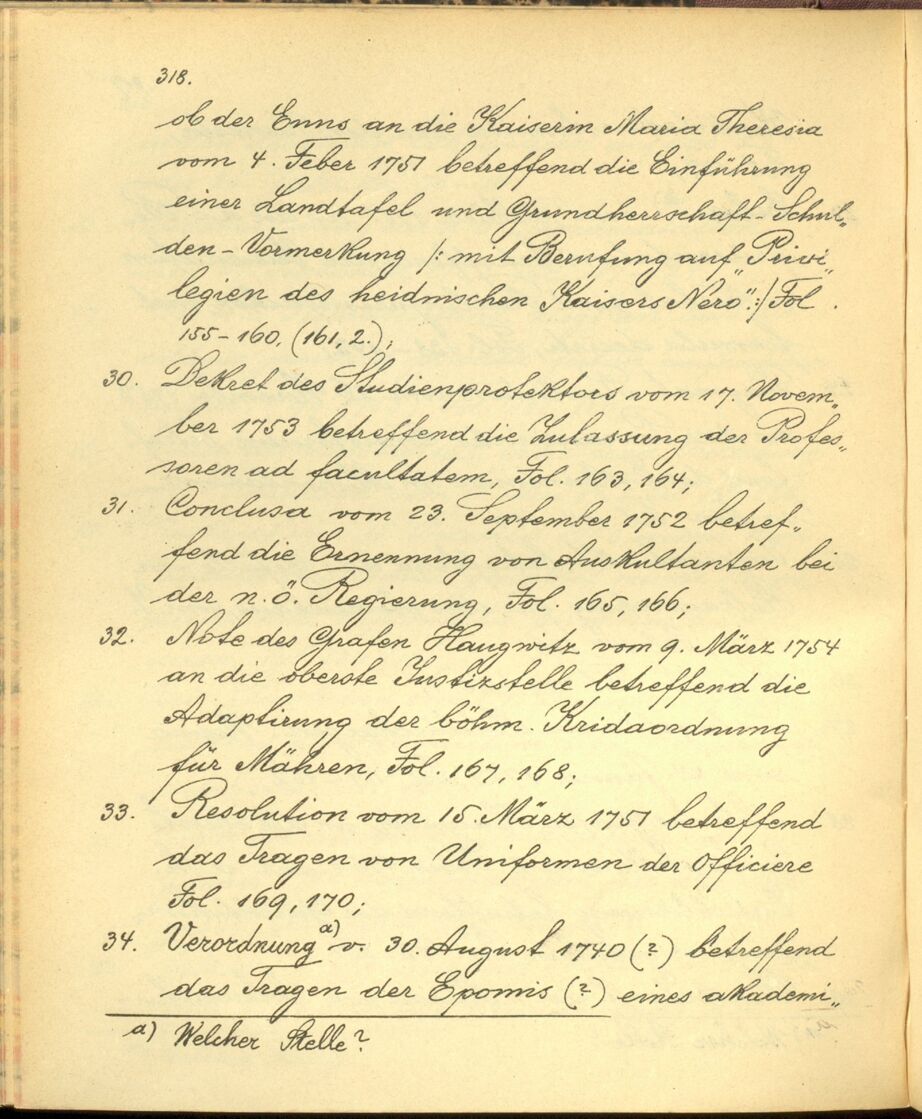 318.
ob der Enns an die Kaiserin Maria Theresia
vom 4. Feber 1751 betreffend die Einführung
einer Landtafel und Grundherrschaft-Schul„
den-Vormerkung /: mit Berufung auf „Privi„
legien des heidnischen Kaisers Nero":/ Fol.
155-160, (161, 2.);
30. Dekret des Studienprotektors vom 17. Novem„
ber 1753 betreffend die Zulassung der Profes„
soren ad facultatem, Fol. 163, 164;
31. Conclusa vom 23. September 1752 betref„
fend die Ernennung von Auskultanten bei
der n.ö. Regierung, Fol. 165, 166;
32. Note des Grafen Haugwitz vom 9. März 1754
an die oberste Justizstelle betreffend die
Adaptirung der böhm. Kridaordnung
für Mähren, Fol. 167, 168;
33. Resolution vom 15. März 1751 betreffend
das Tragen von Uniformen der Officiere
Fol. 169, 170;
34. Verordnung a) v. 30. August 1740 (?) betreffend
das Tragen der Epomis (?) eines akademi„
a) Welcher Stelle?